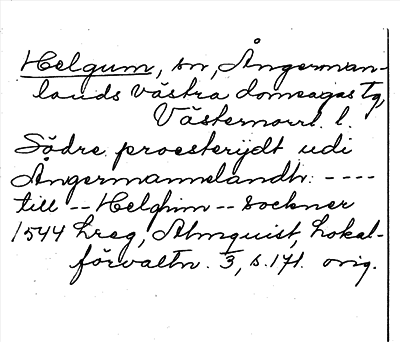 Helgum, sn, Ångerman-
lands västra domsagas tg,
Västernorrl. l.
Södre proesterijdt udi
Ångermannelandh: ----
till -- Helghim -- sockner
1544 Lreg, Almquist, Lokal-
förvaltn. 3, s. 171. orig.